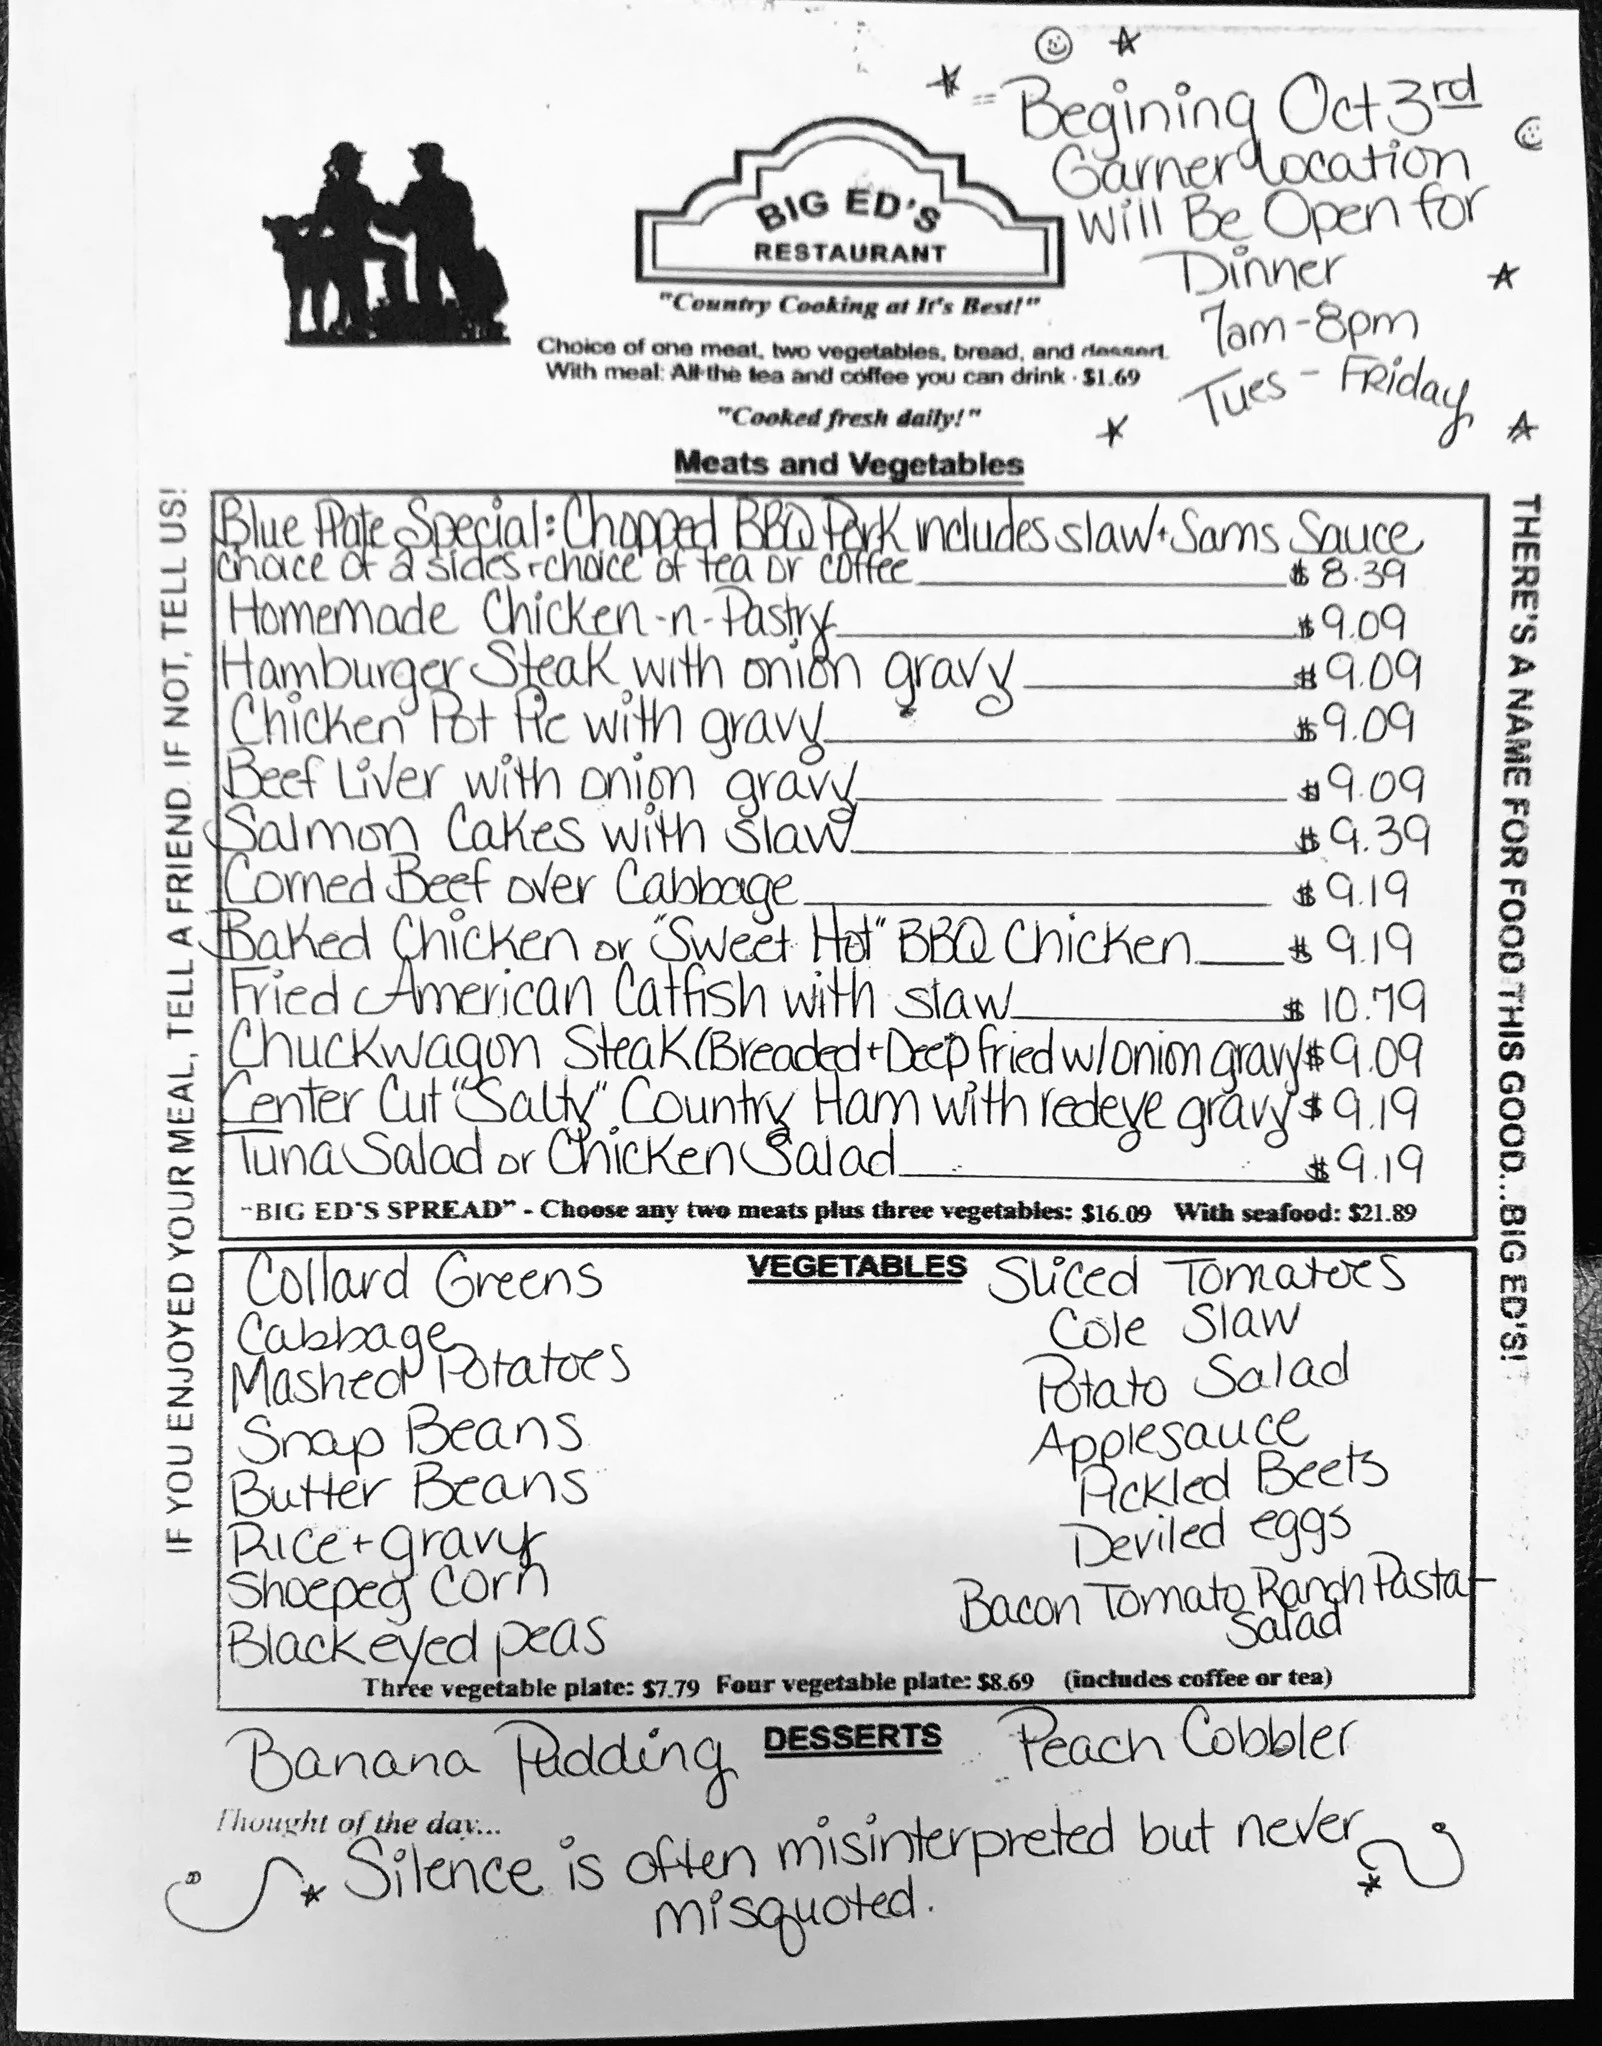 = Begining Oct 3rd
Garner Location
Will Be Open for
Dinner
7am-8pm
Tues - Friday
BIG ED'S
RESTAURANT
"Country Cooking at It's Best!"
Choice of one meat, two vegetables, bread, and dessert.
With meal: All the tea and coffee you can drink · $1.69
"Cooked fresh daily!"
Meats and Vegetables
IF YOU ENJOYED YOUR MEAL, TELL A FRIEND. IF NOT, TELL US!
Blue Plate Special: Chopped BBQ Pork includes slaw + Sams Sauce
choice of 2 sides + choice of tea or coffee $8.39
Homemade Chicken-n-Pastry $9.09
Hamburger Steak with onion gravy $9.09
Chicken Pot Pie with gravy $9.09
Beef Liver with onion gravy $9.09
Salmon Cakes with slaw $9.39
Corned Beef over Cabbage $9.19
Baked Chicken or "Sweet Hot" BBQ Chicken $9.19
Fried American Catfish with slaw $10.79
Chuckwagon Steak (Breaded + Deep fried w/onion gravy $9.09
Center Cut "Salty" Country Ham with redeye gravy $9.19
Tuna Salad or Chicken Salad $9.19
"BIG ED'S SPREAD" - Choose any two meats plus three vegetables: $16.09 With seafood: $21.89
THERE'S A NAME FOR FOOD THIS GOOD...BIG ED'S!
VEGETABLES
Collard Greens
Cabbage
Mashed Potatoes
Snap Beans
Butter Beans
Rice + gravy
Shoepeg Corn
Blackeyed peas
Sliced Tomatoes
Cole Slaw
Potato Salad
Applesauce
Pickled Beets
Deviled eggs
Bacon Tomato Ranch Pasta
Salad
Three vegetable plate: $7.79 Four vegetable plate: $8.69 (includes coffee or tea)
DESSERTS
Banana Pudding
Peach Cobbler
Thought of the day...
Silence is often misinterpreted but never
misquoted.